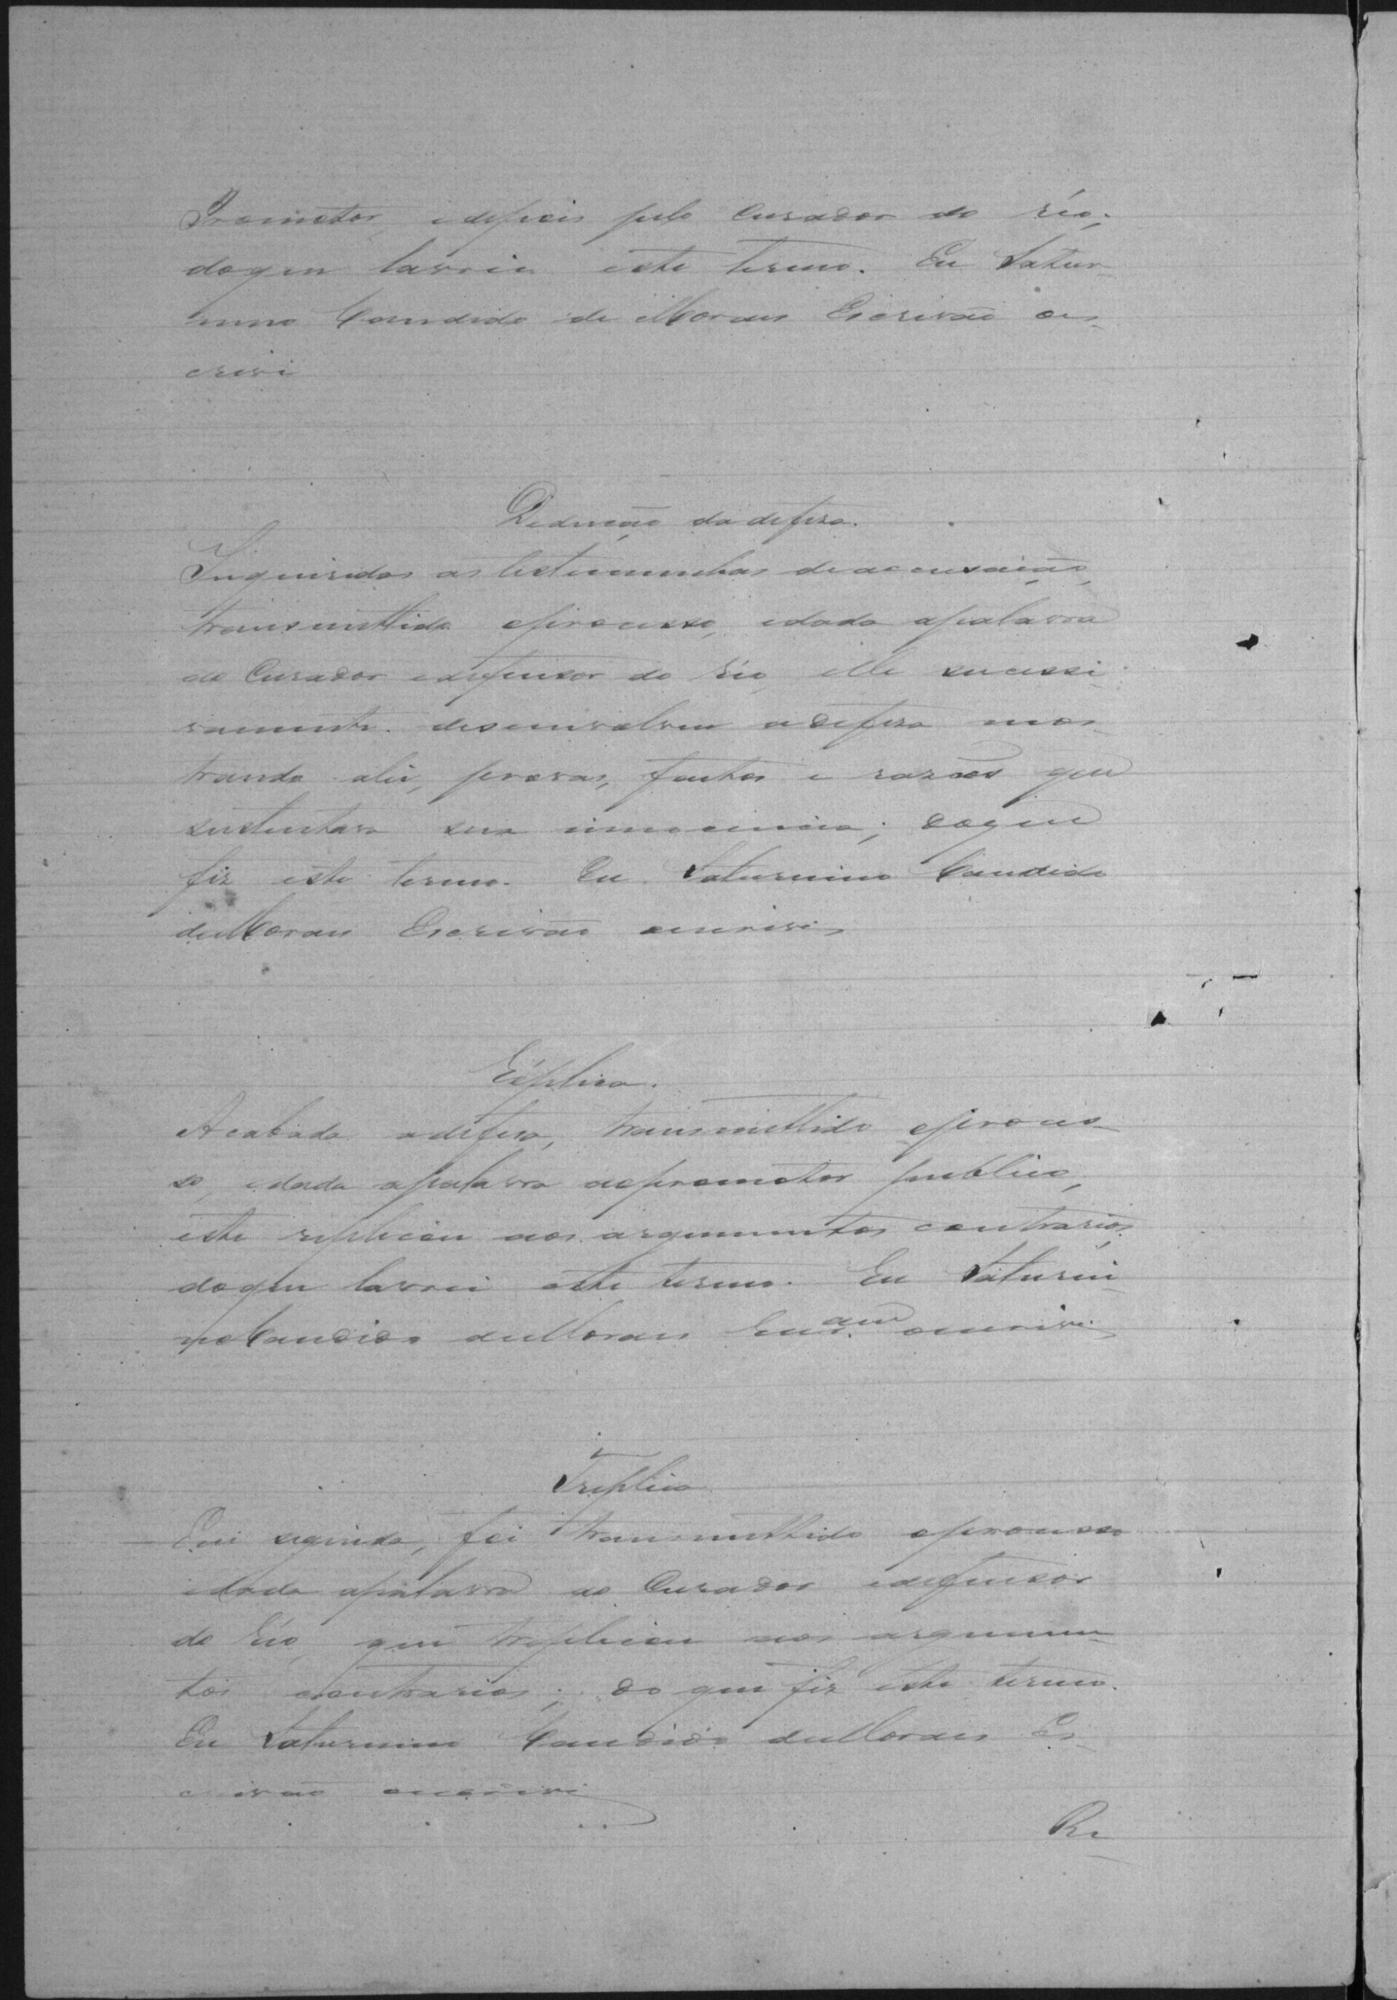 Promotor e depois pelo Curador do réo;
doque lavrei este termo. Eu Satur-
nino Candido de Moraes Escrivão o es-
crivi
Deducção da defeza.
Inqueridas as testemunhas de accusação,
transmittido oprocesso, edada apalavra
ao Curador edefensor do réo, elle successi-
vamente desenvolveu adefeza mos-
trando a lei, provas, factos e razões que
sustentava sua innocencia; doque
fiz este termo. Eu Saturnino Candido
de Moraes Escrivão oescrivi
Réplica.
Acabada adefeza, transmittido oproces-
so, edada apalavra aopromotor publico,
este replicou aos argumentos contrarios,
doque lavrei este termo. Eu Saturni-
no Candido de Moraes Escram oescrivi
Treplica
Em seguida, foi transmittido oprocesso
edada apalavra ao Curador edefensor
do réo, que treplicou aos argumen-
tos contrarios; do que fiz este termo.
Eu Saturnino Candido de Moraes Es-
crivão oescrivi
Re-